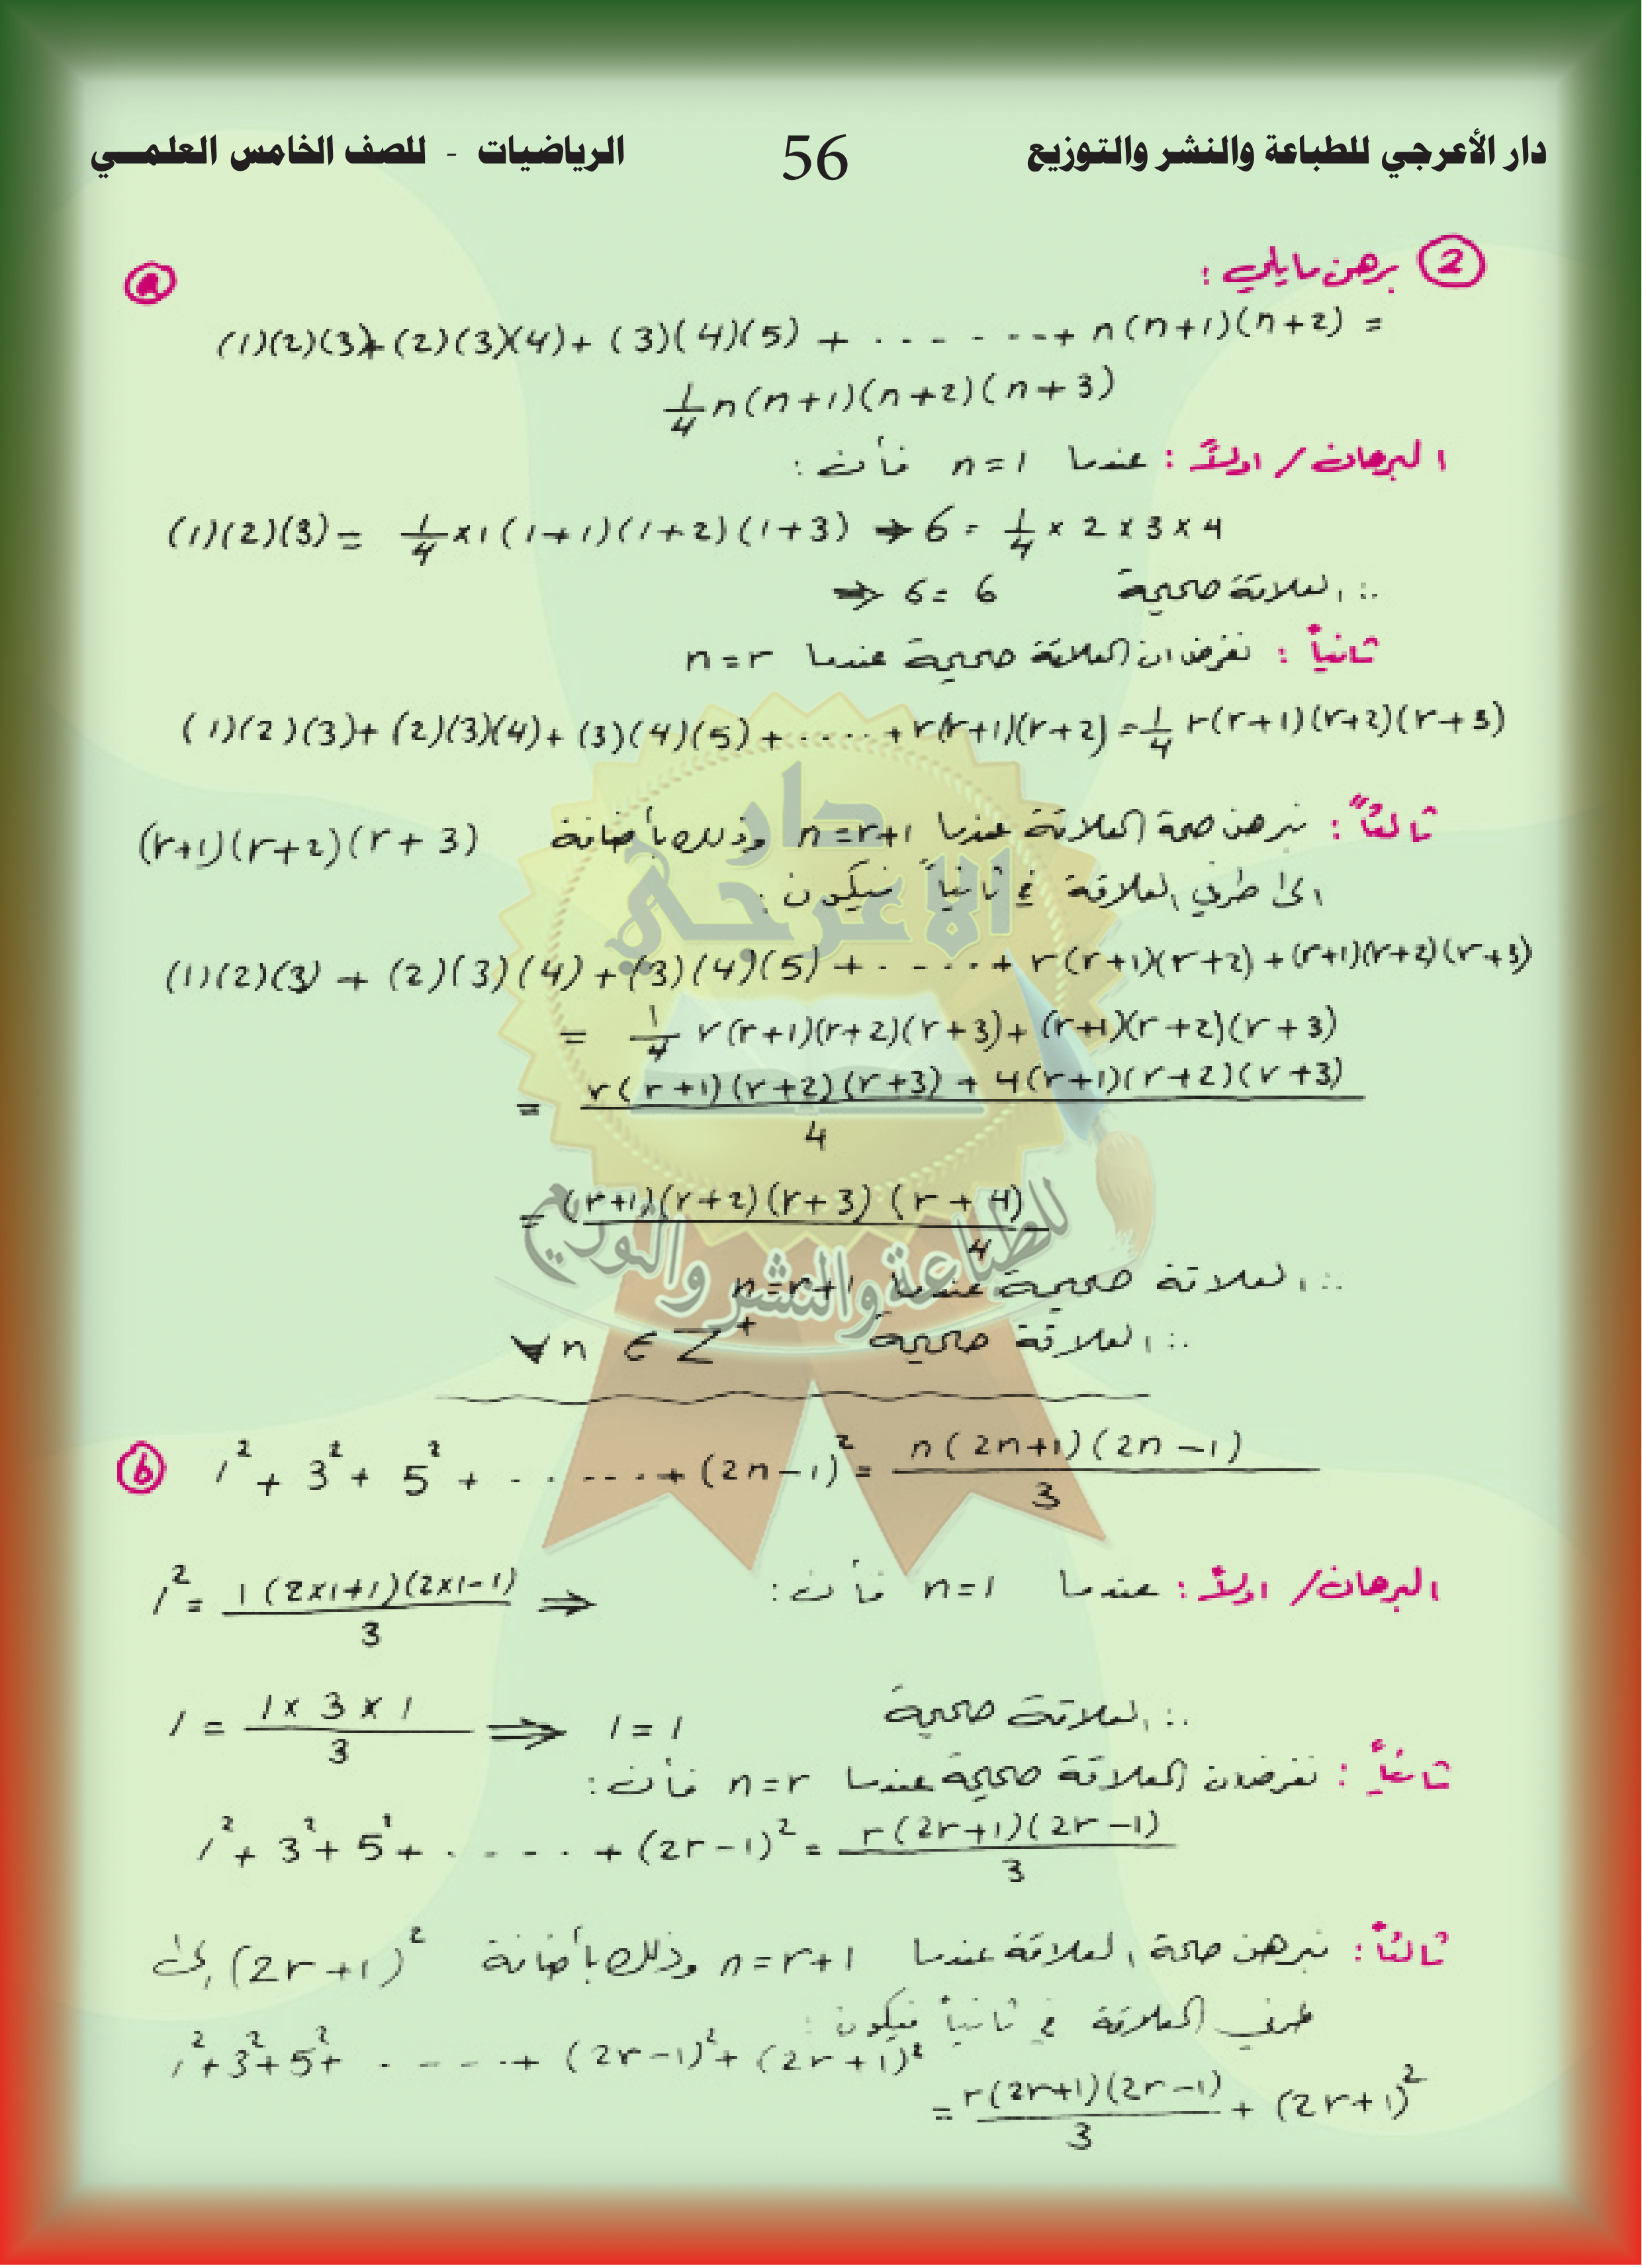 دار الأعرجي للطباعة والنشر والتوزيع 56 الرياضيات - للصف الخامس العلمـــي
② برهن مايلي :
ⓐ
(1)(2)(3)+(2)(3)(4)+(3)(4)(5)+.......+n(n+1)(n+2) =
1/4 n(n+1)(n+2)(n+3)
البرهان/ اولاً : عندما n=1 فأن :
(1)(2)(3) = 1/4 ×1(1+1)(1+2)(1+3) ⇒ 6 = 1/4 × 2 × 3 × 4
⇒ 6 = 6 ∴ العلاقة صحيحة
ثانياً : نفرض ان العلاقة صحيحة عندما n=r
(1)(2)(3)+(2)(3)(4)+(3)(4)(5)+.....+r(r+1)(r+2) = 1/4 r(r+1)(r+2)(r+3)
ثالثاً : نبرهن صحة العلاقة عندما n=r+1 وذلك بأضافة (r+1)(r+2)(r+3)
الى طرفي العلاقة في ثانياً فيكون :
(1)(2)(3)+(2)(3)(4)+(3)(4)(5)+.....+r(r+1)(r+2)+(r+1)(r+2)(r+3)
= 1/4 r(r+1)(r+2)(r+3)+(r+1)(r+2)(r+3)
= r(r+1)(r+2)(r+3)+4(r+1)(r+2)(r+3) / 4
= (r+1)(r+2)(r+3)(r+4) / 4
∴ العلاقة صحيحة عندما n=r+1
∴ العلاقة صحيحة ∀n ∈ Z⁺
ⓑ 1²+3²+5²+......+(2n-1)² = n(2n+1)(2n-1) / 3
البرهان/ اولاً : عندما n=1 فأن :
1² = 1(2×1+1)(2×1-1) / 3 ⇒
1 = 1×3×1 / 3 ⇒ 1=1 ∴ العلاقة صحيحة
ثانياً : نفرض ان العلاقة صحيحة عندما n=r فأن :
1²+3²+5²+.....+(2r-1)² = r(2r+1)(2r-1) / 3
ثالثاً : نبرهن صحة العلاقة عندما n=r+1 وذلك بأضافة (2r+1)² إلى
طرفي العلاقة في ثانياً فيكون :
1²+3²+5²+.....+(2r-1)²+(2r+1)²
= r(2r+1)(2r-1) / 3 + (2r+1)²
دار
الاعرجي
للطباعة والنشر والتوزيع